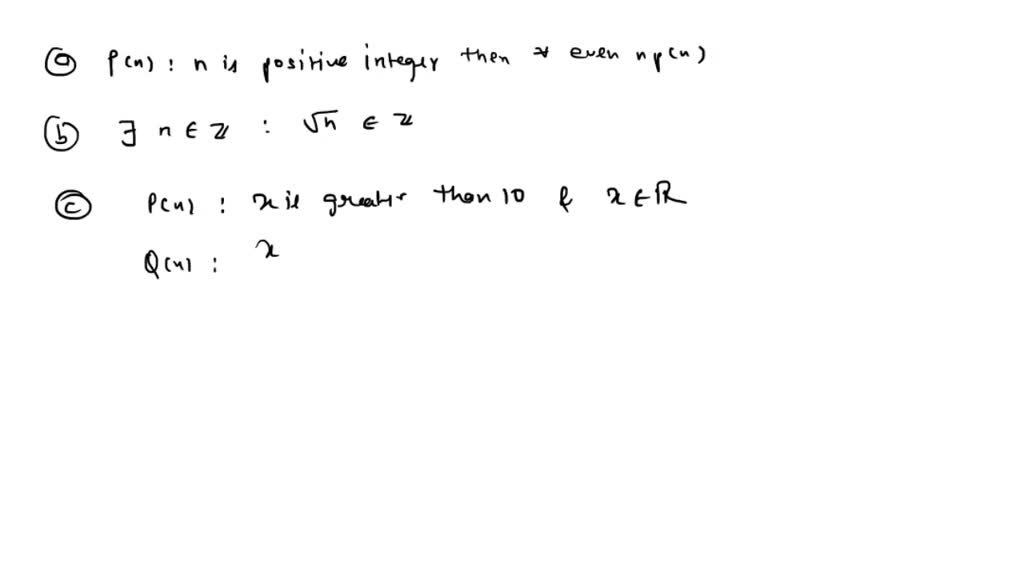 ⓐ P(n) : n is positive integer then ∀ even n p(n)
ⓑ ∃ n ∈ ℤ : √n ∈ ℤ
ⓒ P(n) : x is greater than 10 & x ∈ ℝ
Q(n) : x